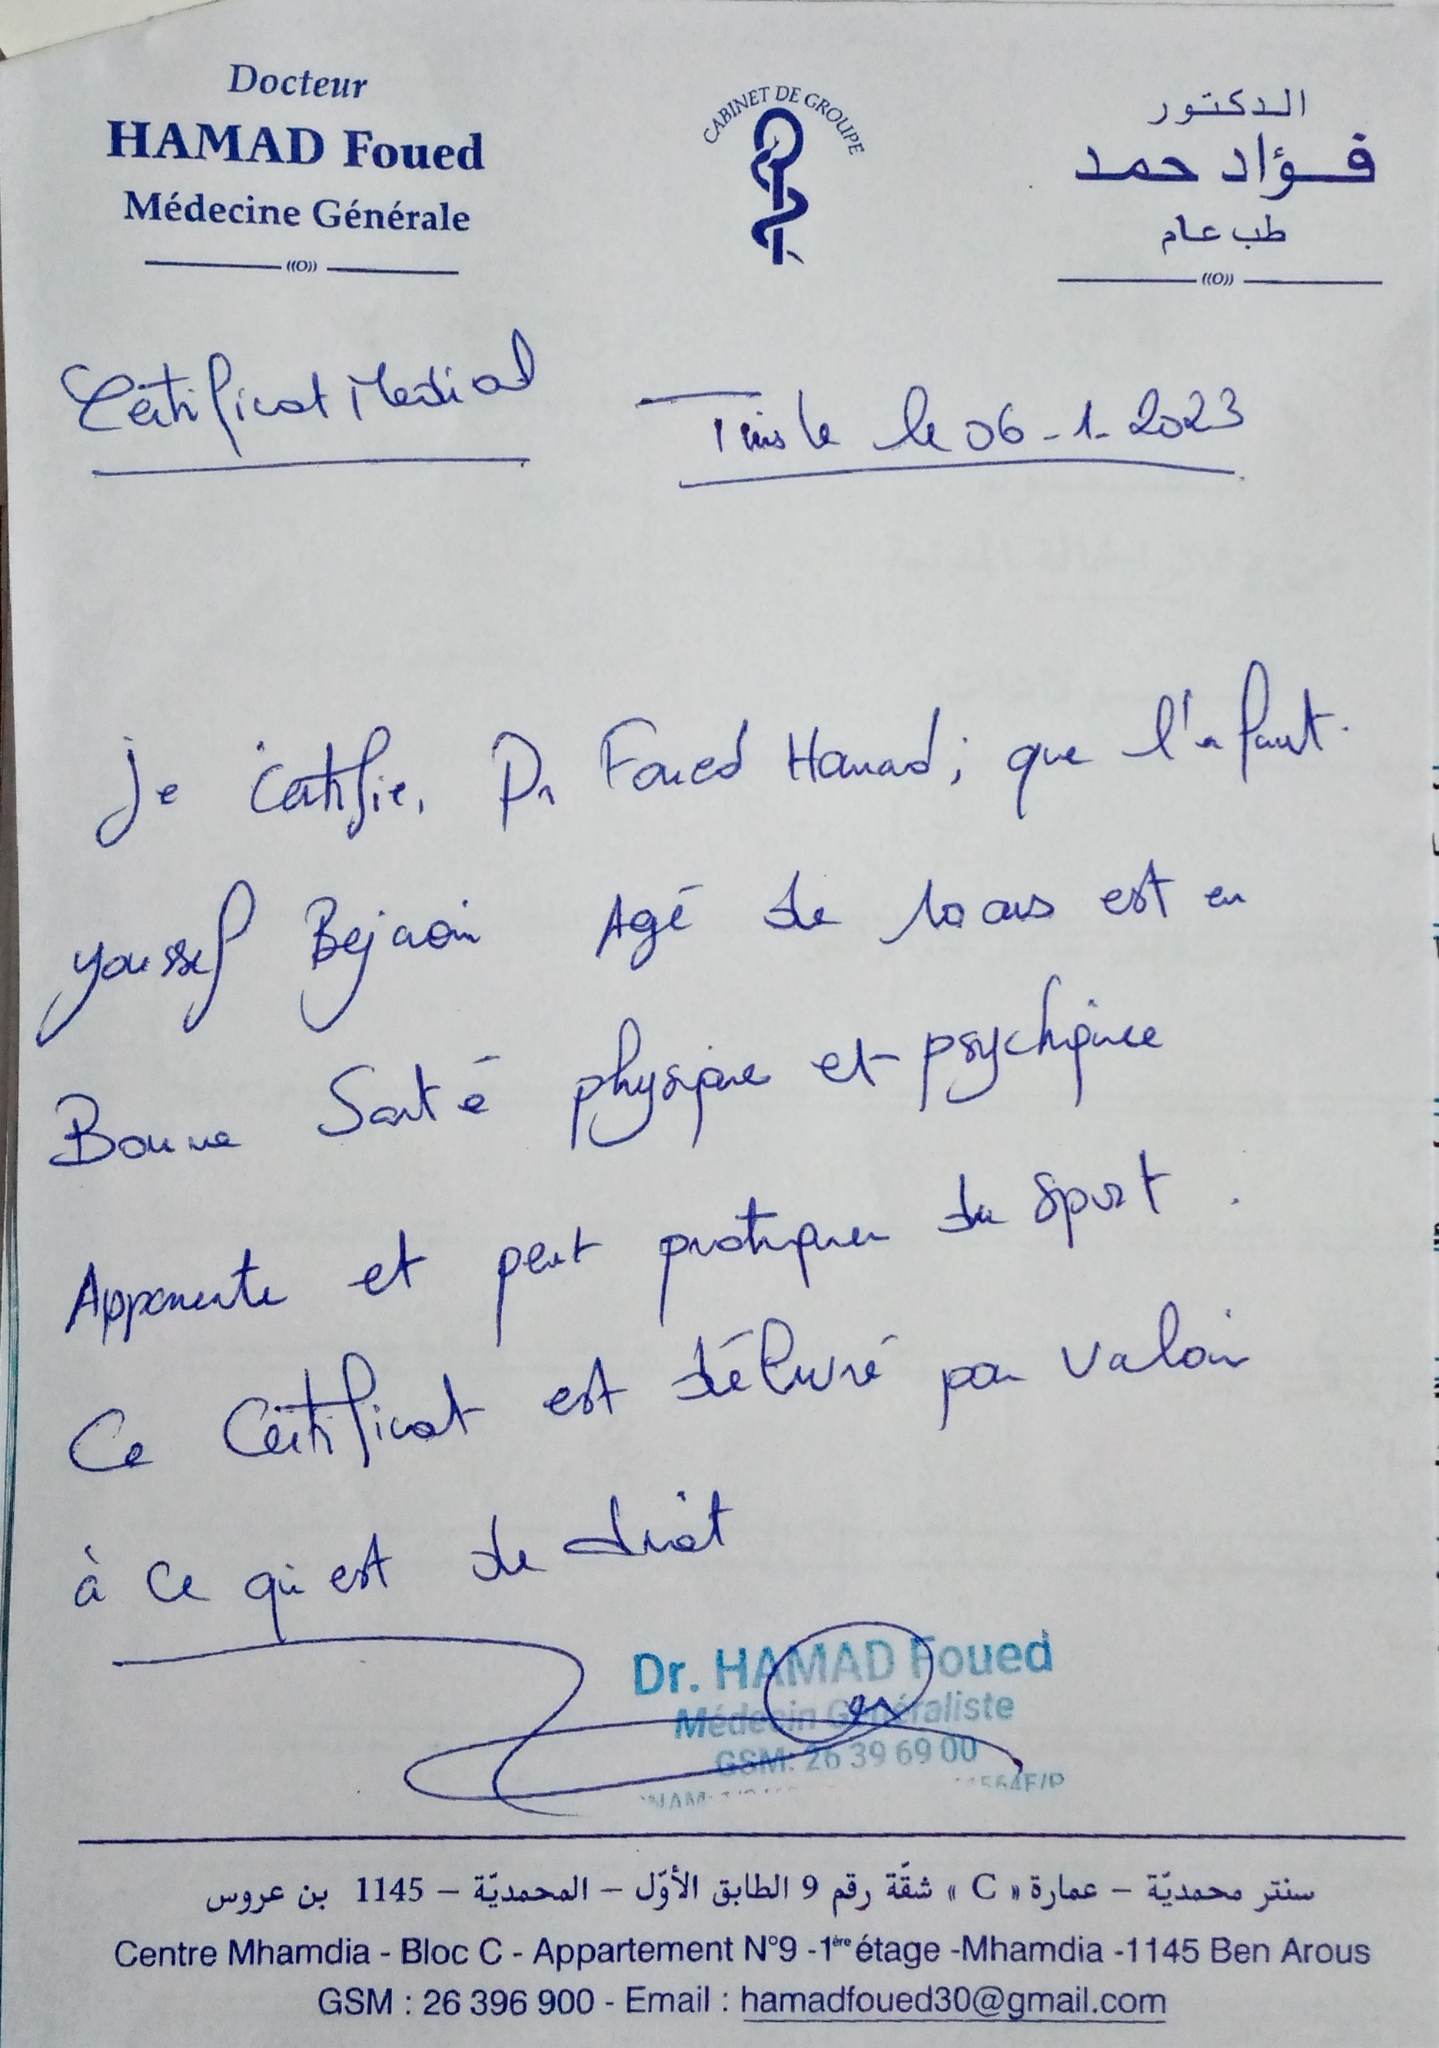 Docteur
HAMAD Foued
Médecine Générale
((O))
CABINET DE GROUPE
الدكتور
فؤاد حمد
طب عام
((O))
Certificat Medical
Tunis le le 06-1-2023
Je certifie, Dr Foued Hamad, que l'enfant
Youssef Bejaoui Agé de 10 ans est en
Bonne Santé physique et psychique
Apparente et peut pratiquer du sport.
Ce Certificat est délivré pour valoir
à ce qui est de droit
Dr. HAMAD Foued
Médecin Généraliste
GSM: 26 39 69 00
سنتر محمديّة – عمارة « C » شقّة رقم 9 الطابق الأوّل – المحمديّة – 1145 بن عروس
Centre Mhamdia - Bloc C - Appartement N°9 -1ère étage -Mhamdia -1145 Ben Arous
GSM : 26 396 900 - Email : hamadfoued30@gmail.com